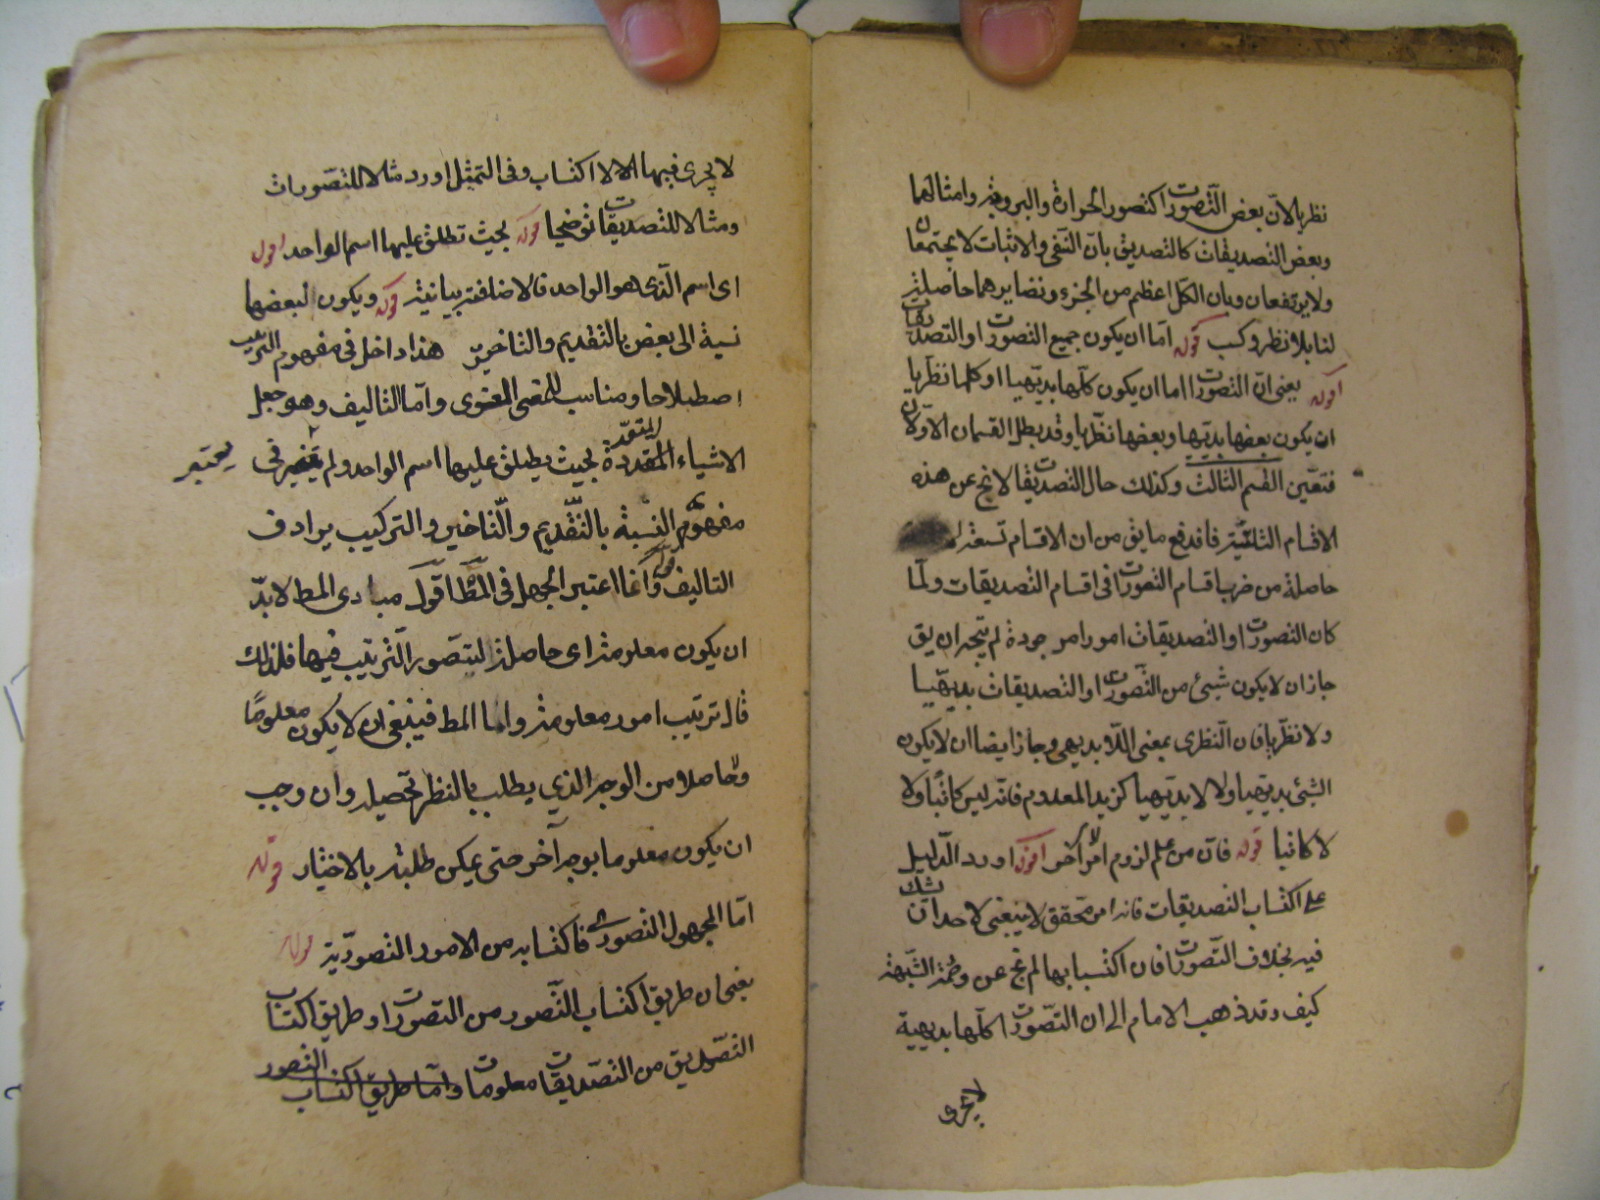 نظريا لان بعض التصورات كتصور الحرارة والبرودة وامثالهما
وبعض التصديقات كالتصديق بان النفى والاثبات لا يجتمعان
ولا يرتفعان وبان الكل اعظم من الجزء ونضايرهما حاصلة
لنا بلا نظر وكسب قوله اما ان يكون جميع التصورات او التصديقات
اقول يعنى ان التصورات اما ان يكون كلها بديهيا او كلها نظريا
ان يكون بعضها بديهيا وبعضها نظريا وقد بطل القسمان الاولان
فتعين القسم الثالث وكذلك حال التصديقات لا يخ عن هذه
الاقسام الثلثة فاندفع ما يق من ان الاقسام تسعة
حاصلة من ضرب اقسام التصورات فى اقسام التصديقات ولما
كان التصورات او التصديقات امورا موجودة لم يتجه ان يق
جاز ان لا يكون شيئ من التصورات او التصديقات بديهيا
ولا نظريا فان النظرى بمعنى اللا بديهى وجاز ايضا ان لا يكون
الشيئ بديهيا ولا لا بديهيا كزيد المعدوم فانه ليس كاتبا ولا
لا كاتبا قوله فان من علم لزوم امر لاخر اقول اورد الدليل
على اكتساب التصديقات فانه امر محقق لا ينبغى لاحد ان يشك
فيه بخلاف التصورات فان اكتسابها لم يخ عن وصمة الشبهة
كيف وقد ذهب الامام الى ان التصورات كلها بديهية
لا يجرى
لا يجرى فيها الاكتساب وفى التمثيل اورد مثالا للتصورات
ومثالا للتصديقات توضيحا قوله بحيث تطلق عليها اسم الواحد اقول
اى اسم الذى هو الواحد فالاضافة بيانية قوله ويكون لبعضها
نسبة الى بعض بالتقديم والتاخير هذا داخل فى مفهوم الترتيب
اصطلاحا ومناسب للمعنى اللغوى واما التاليف وهو جعل
الاشياء المتعددة بحيث يطلق عليها اسم الواحد ولم يعتبر فى
مفهومه النسبة بالتقديم والتاخير والتركيب يرادف
التاليف قوله وانما اعتبر الجهل فى المط اقول مبادى المط لا بد
ان يكون معلومة اى حاصلة ليتصور الترتيب فيها فلذلك
قال ترتيب امور معلومة واما المط فينبغى ان لا يكون معلوما
وحاصلا من الوجه الذي يطلب بالنظر تحصيله وان وجب
ان يكون معلوما بوجه آخر حتى يمكن طلبه بالاختيار قوله
اما المجهول التصورى فاكتسابه من الامور التصورية قوله
يعنى ان طريق اكتساب التصور من التصورات او طريق اكتساب
التصديق من التصديقات معلومات واما طريق اكتساب التصور